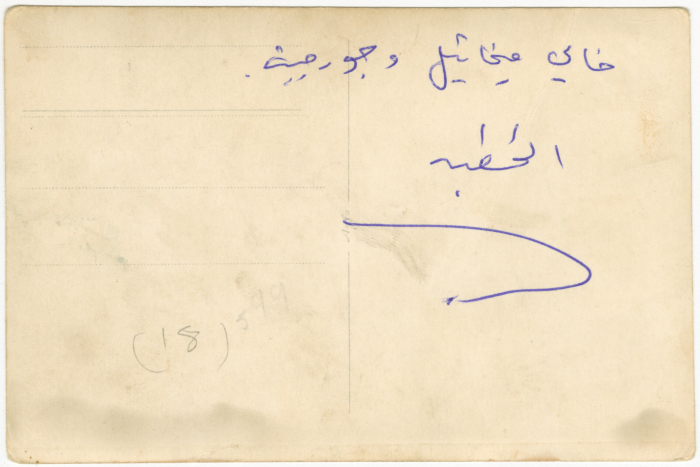 خالي ميخائيل وجورجيت.
الخطبه
(18)